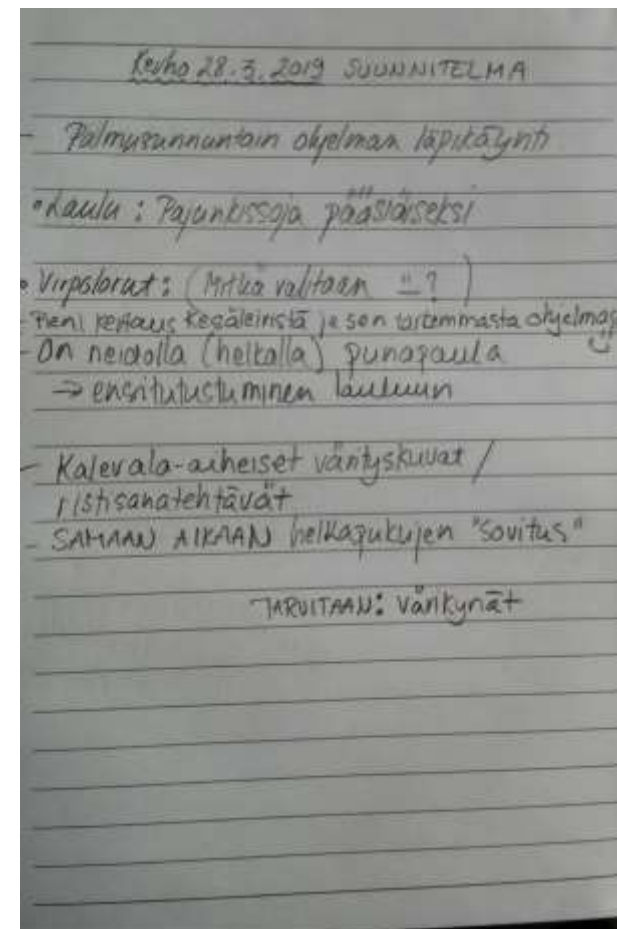 Kerho 28.3.2019 SUUNNITELMA
- Palmusunnuntain ohjelman läpikäynti
• Laulu : Pajunkissoja pääsiäiseksi
• Virpolorut : (Mitkä valitaan ?)
- Pieni kertaus Kesäleiristä ja sen tarkemmasta ohjelmas
- On neidolla (helkalla) punapaula
→ ensitutustuminen lauluun
- Kalevala-aiheiset värityskuvat /
ristisanatehtävät
- SAMAAN AIKAAN helkapukujen "sovitus"
TARVITAAN : värikynät